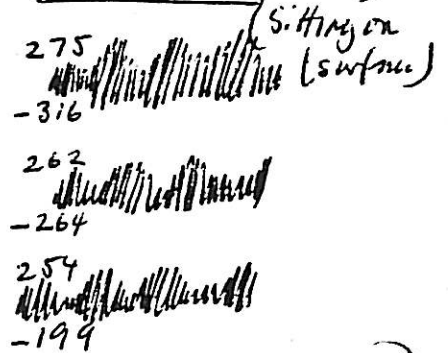 (Sitting on
275 (surface)
-316
262
-264
254
-199